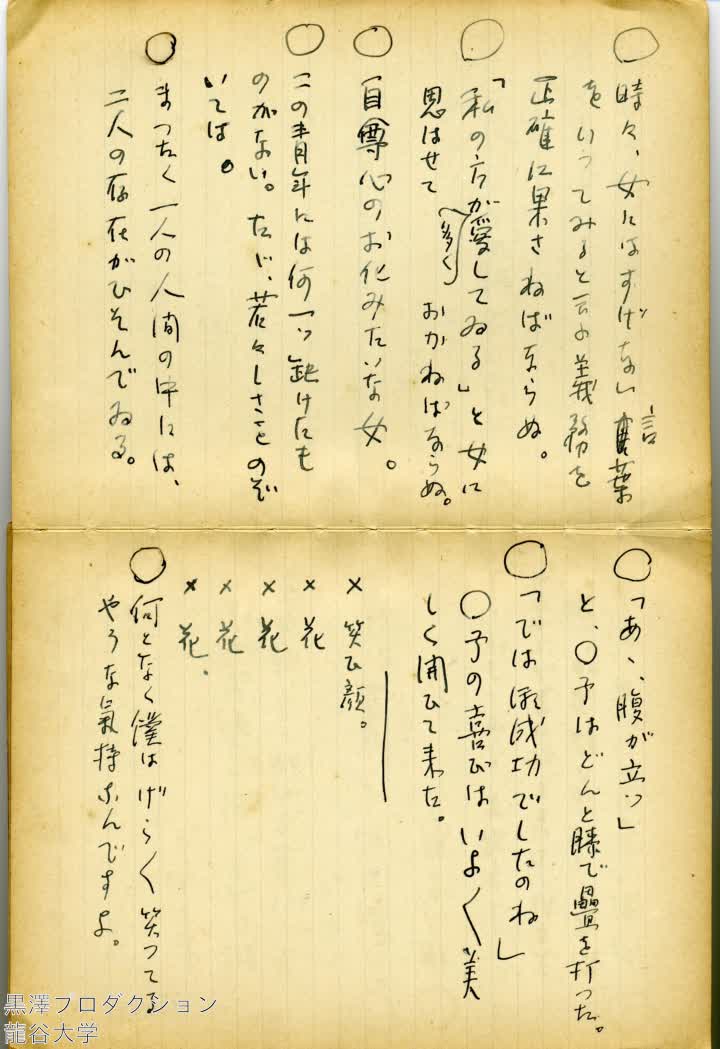 ○
時々、女にはすげない言葉
をいつてみると云ふ義務を
正確に果さねばならぬ。
○
「私の方が(多く)愛してゐる」と女に
思はせておかねばならぬ。
○
自尊心のお化みたいな女。
○
この青年には何一ッ缺けたも
のがない。たゞ、若々しさをのぞ
いては。
○
まつたく一人の人間の中には、
二人の存在がひそんでゐる。
○
「あゝ、腹が立つ」
と、○子はどんと膝で疊を打つた。
○
「では成功でしたのね」
○子の喜びはいよ〱美
しく開ひて来た。
× 笑ひ顔。
× 花
× 花
× 花
× 花.
○
何となく僕はげら〱笑つてる
やうな氣持なんですよ。
黒澤プロダクション
龍谷大学